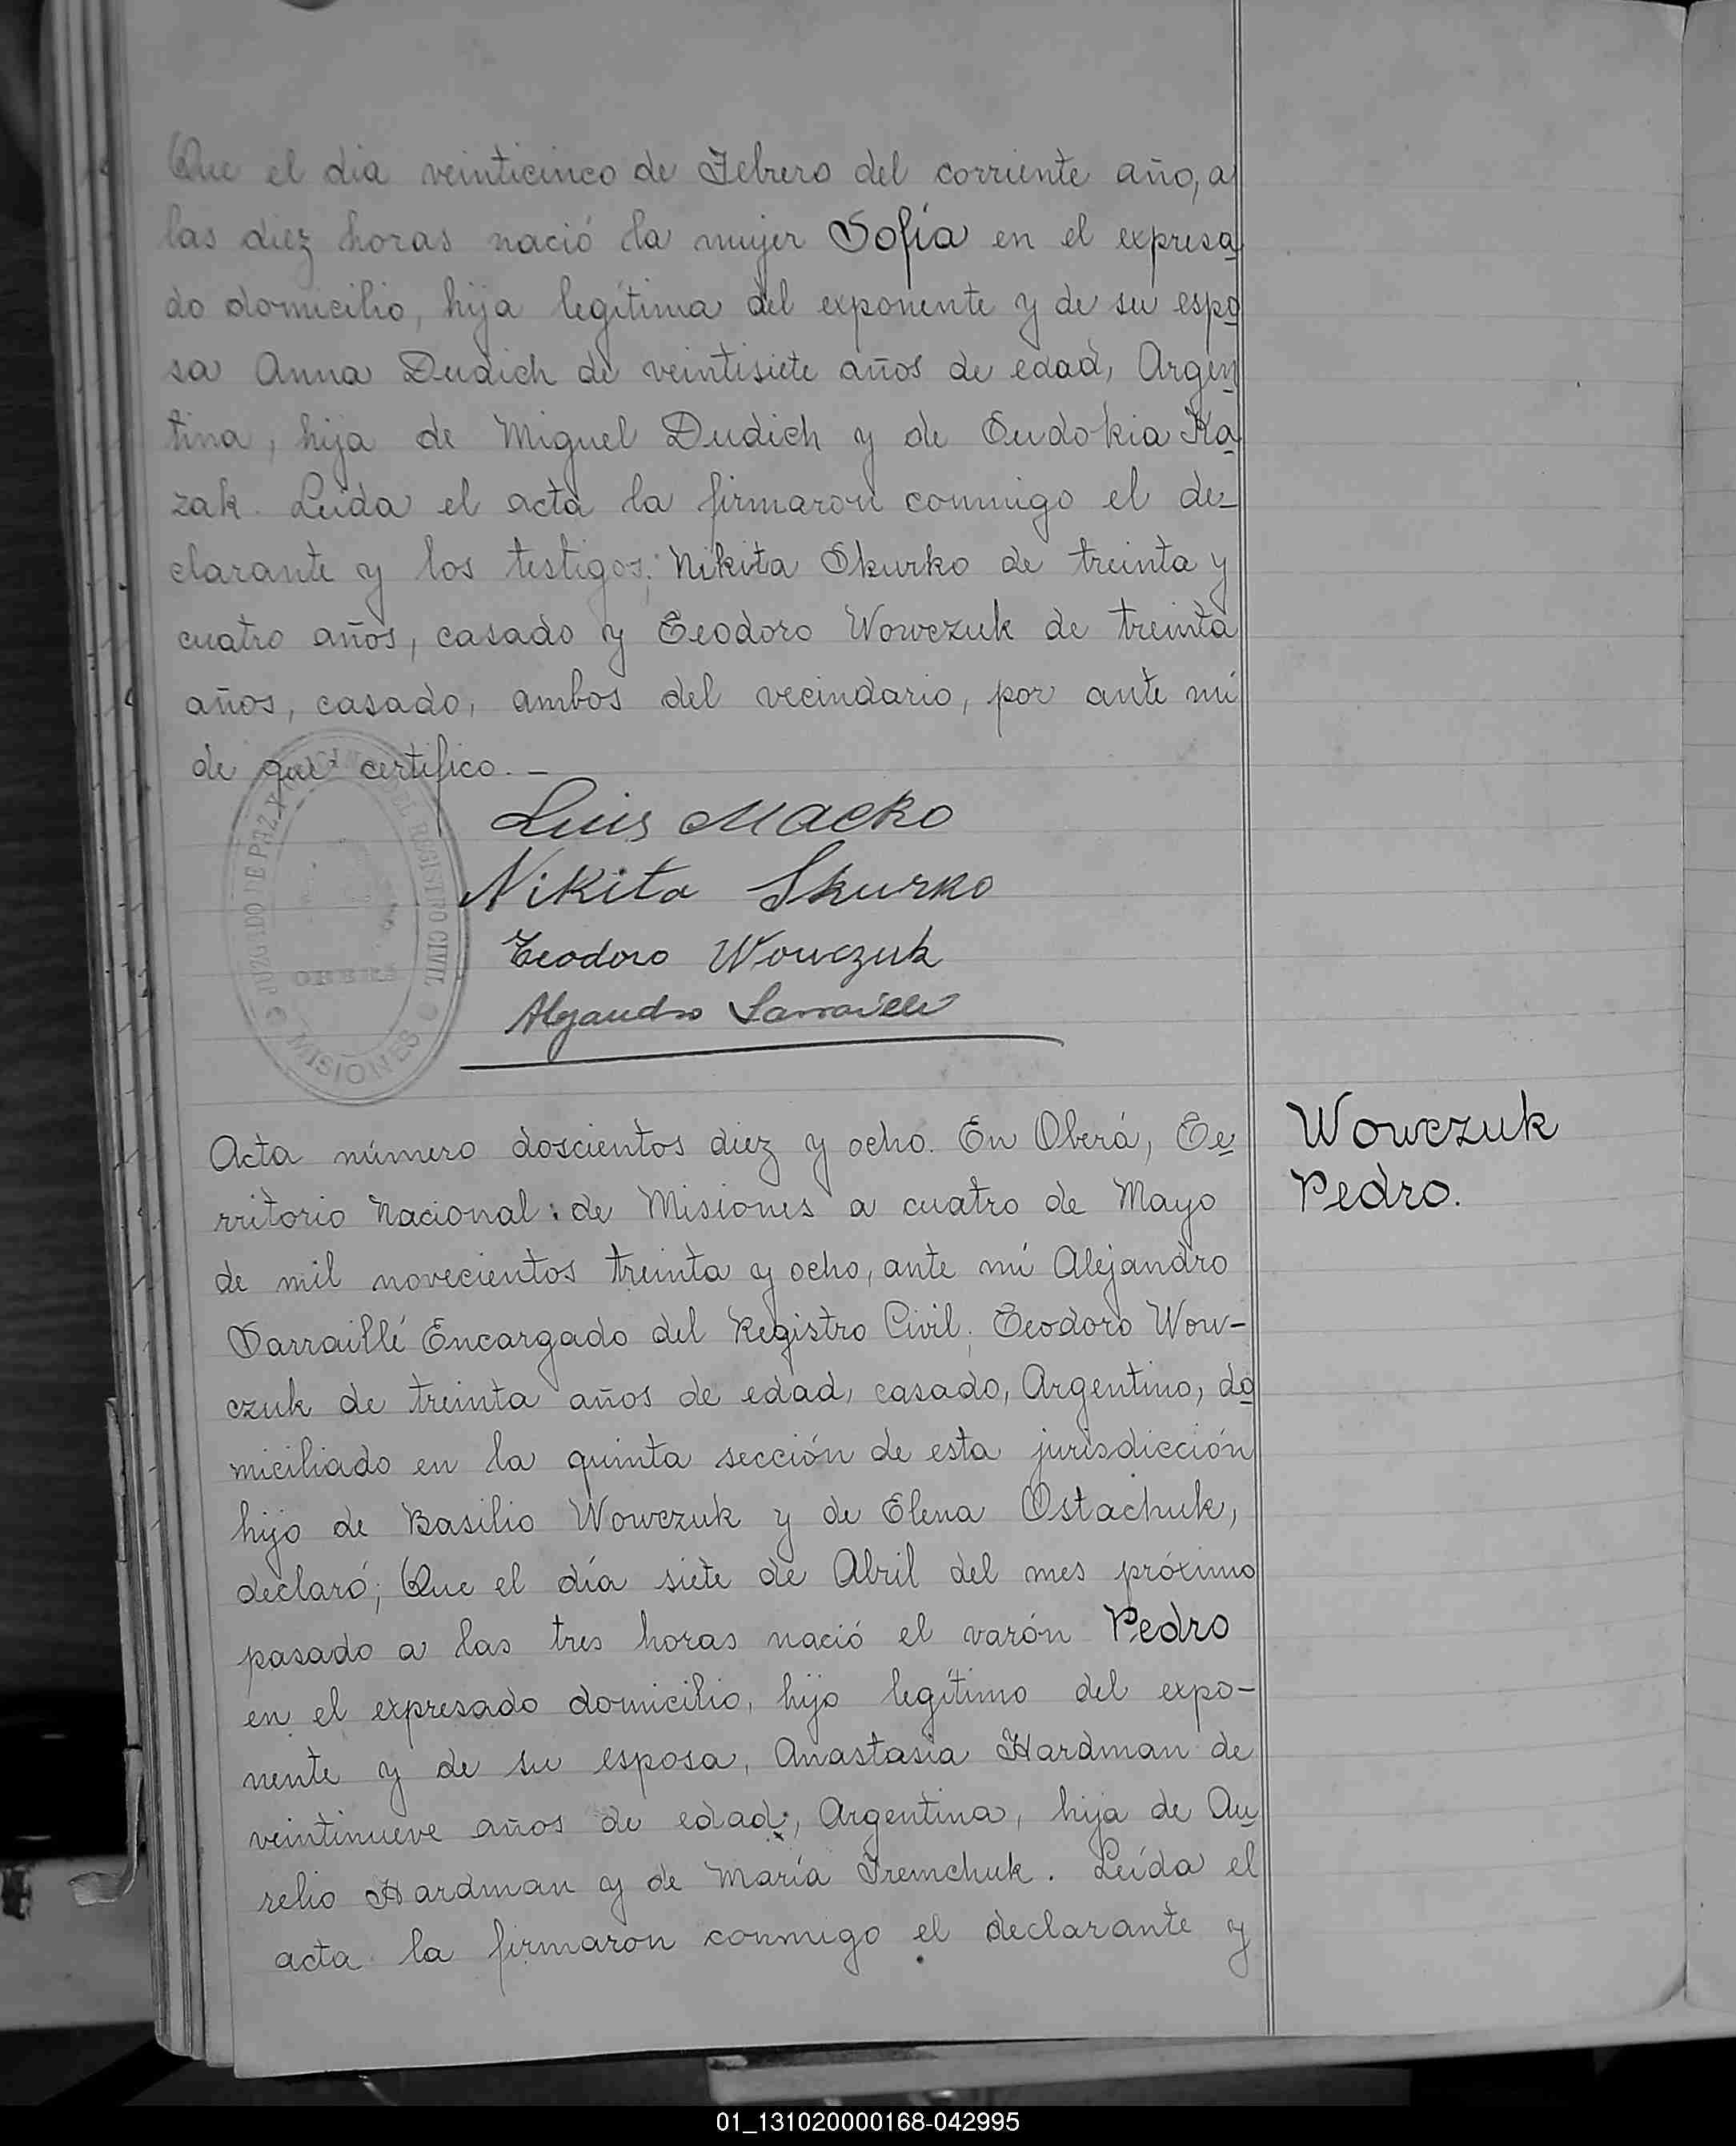 Que el dia veinticinco de Febrero del corriente año, a
las diez horas nació la mujer Sofía en el expresa
do domicilio, hija legítima del exponente y de su espo
sa Anna Dudich de veintisiete años de edad, Argen
tina, hija de Miguel Dudich y de Eudokia Ka
zak. Leida el acta la firmaron conmigo el de-
clarante y los testigos: Nikita Skurko de treinta y
cuatro años, casado y Teodoro Wowczuk de treinta
años, casado, ambos del vecindario, por ante mí
de que certifico. -
JUZGADO DE PAZ Y DEL REGISTRO CIVIL
OBERA
MISIONES
Luis Macko
Nikita Skurko
Teodoro Wowczuk
Alejandro Sarraillé
Acta número doscientos diez y ocho. En Oberá, Te
rritorio Nacional: de Misiones a cuatro de Mayo
de mil novecientos treinta y ocho, ante mí Alejandro
Sarraillé Encargado del Registro Civil; Teodoro Wow-
czuk de treinta años de edad, casado, Argentino, do
miciliado en la quinta sección de esta jurisdicción
hijo de Basilio Wowczuk y de Elena Ostachuk,
declaró; Que el día siete de Abril del mes próximo
pasado a las tres horas nació el varón Pedro
en el expresado domicilio, hijo legítimo del expo-
nente y de su esposa, Anastasia Hardman de
veintinueve años de edad, Argentina, hija de Au
relio Hardman y de María Iremchuk. Leída el
acta la firmaron conmigo el declarante y
Wowczuk
Pedro.
01_131020000168-042995